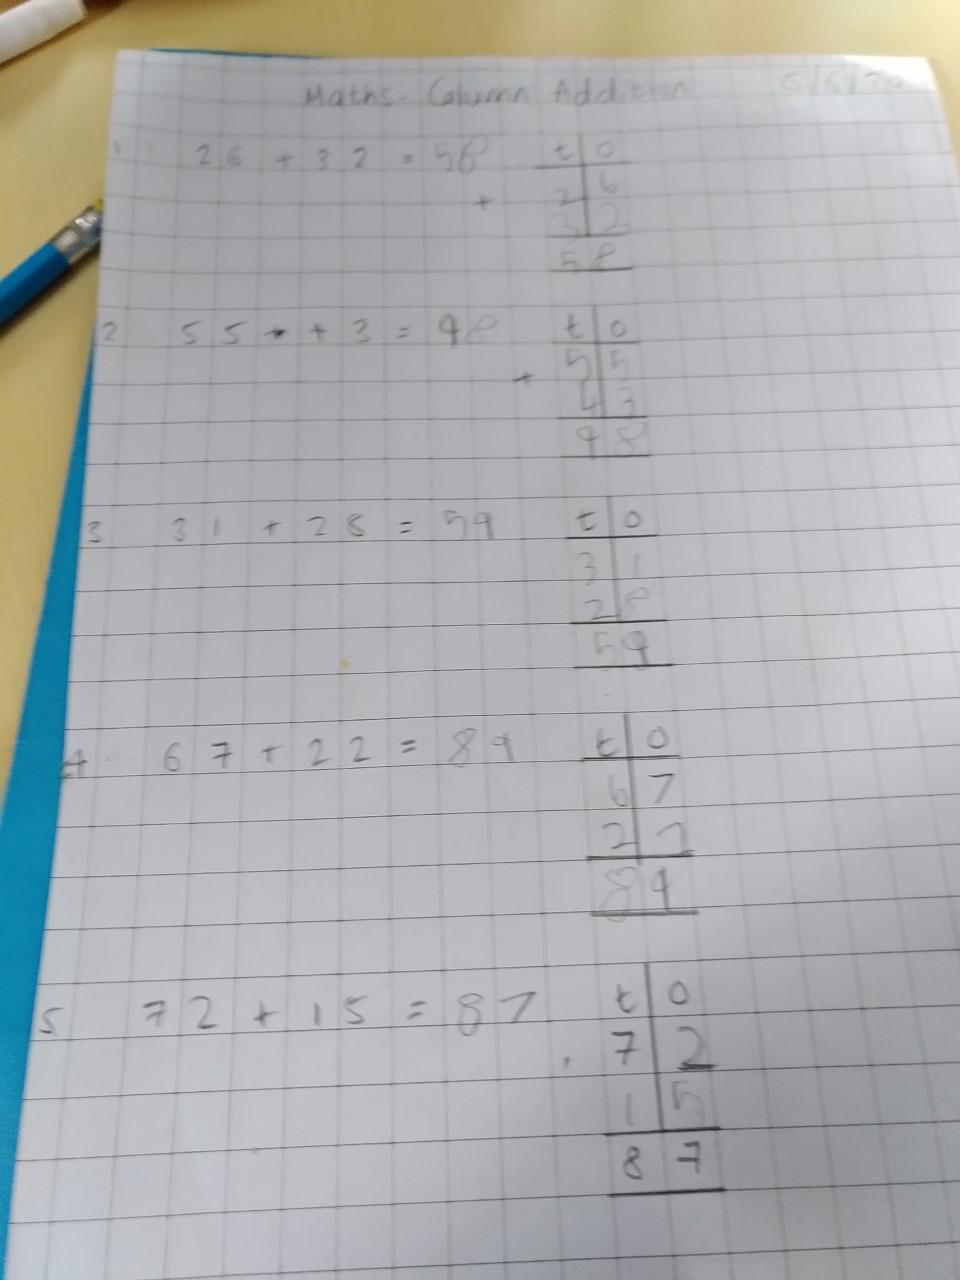 Maths. Column Addition 5/5/20
1 26 + 32 = 58
t o
+ 26
32
58
2 55 + 3 = 98
t o
+ 55
43
98
3 31 + 28 = 59
t o
31
28
59
4 67 + 22 = 89
t o
67
22
89
5. 72 + 15 = 87
t o
72
15
87